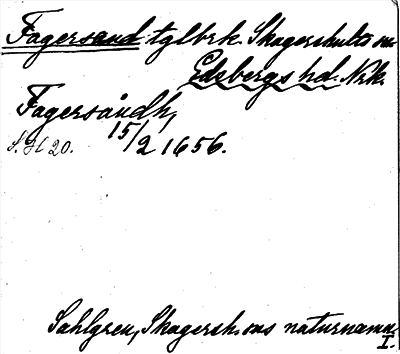 Fagersand tglbrk. Skagershults sn.
Edsbergs hd. Nrk.
Fagersåndh,
15/2 1656.
S. H 20.
Sahlgren, Skagersh. sns naturnamn
I.